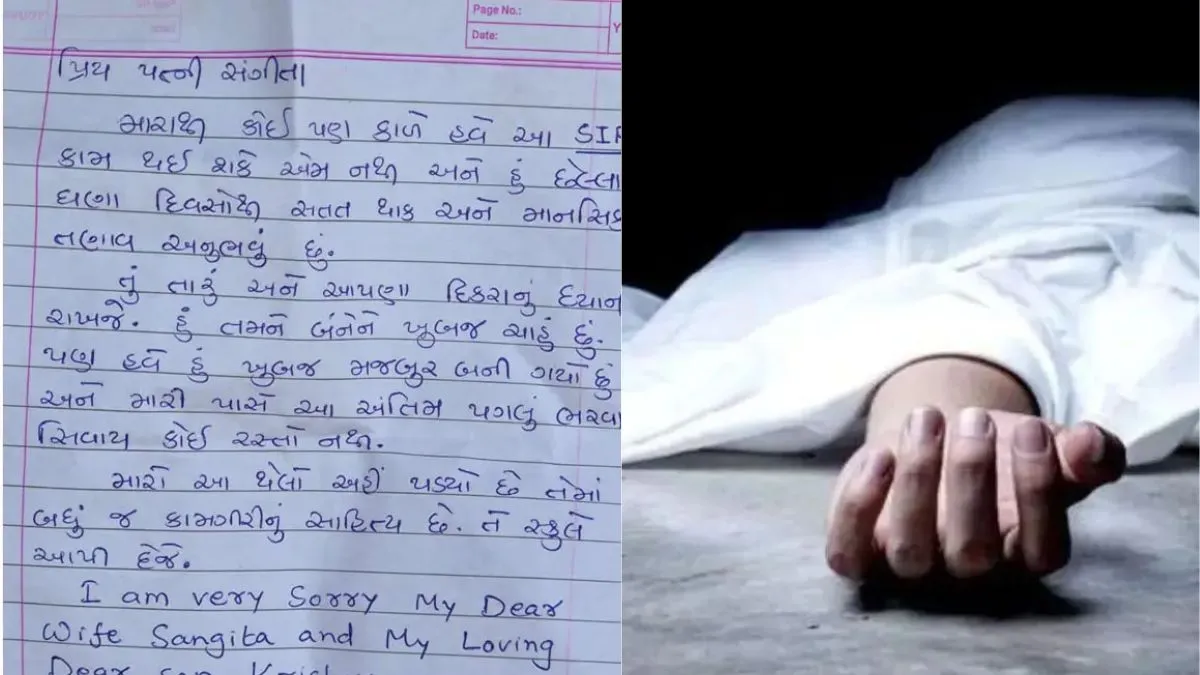 Page No.:
Date:
પ્રિય પત્ની સંગીતા
મારાથી કોઈ પણ કાળે હવે આ SIR
કામ થઈ શકે એમ નથી અને હું છેલ્લા
ઘણા દિવસોથી સતત થાક અને માનસિક
તણાવ અનુભવું છું.
તું તારું અને આપણા દિકરાનું ધ્યાન
રાખજે. હું તમને બંનેને ખુબજ ચાહું છું.
પણ હવે હું ખુબજ મજબુર બની ગયો છું
અને મારી પાસે આ અંતિમ પગલું ભરવા
સિવાય કોઈ રસ્તો નથી.
મારો આ થેલો અહીં પડ્યો છે તેમાં
બધું જ કામગીરીનું સાહિત્ય છે. તે સ્કુલે
આપી દેજે.
I am very Sorry My Dear
Wife Sangita and My Loving
Dear son